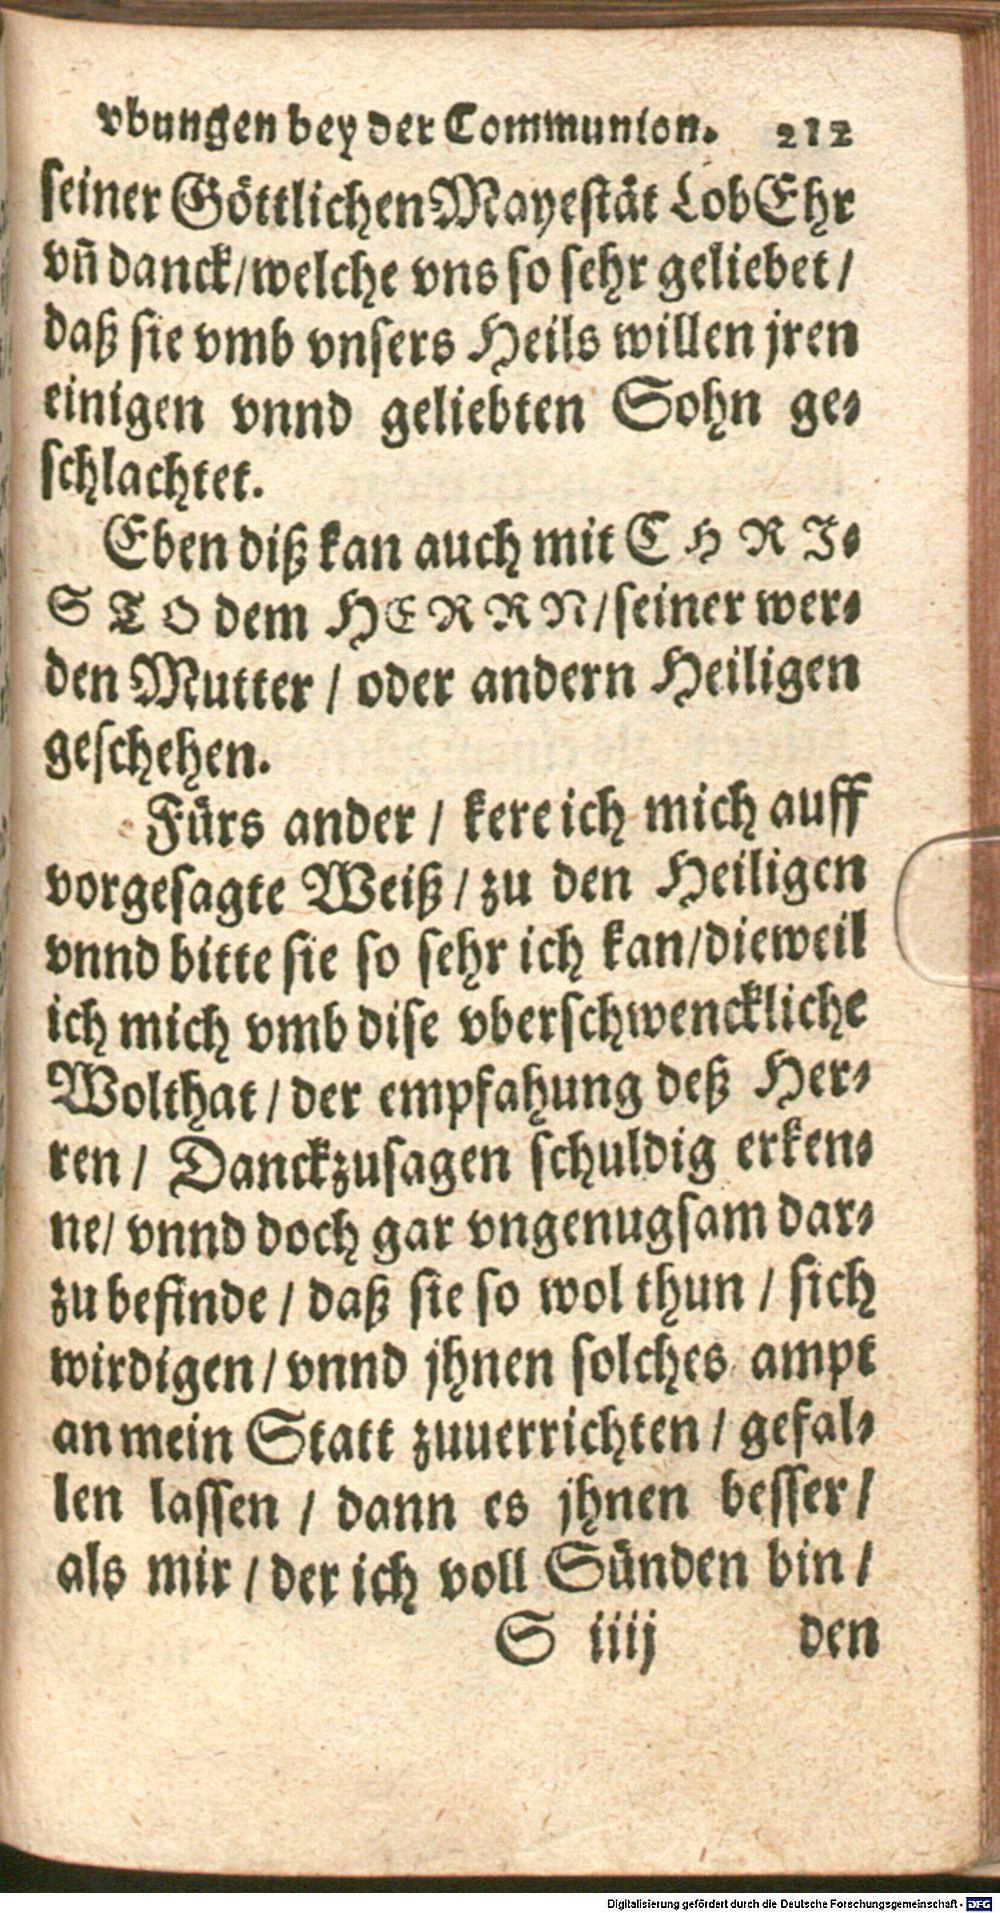 vbungen bey der Communion. 212
seiner Göttlichen Mayestät Lob Ehr
vn̄ danck/welche vns so sehr geliebet/
daß sie vmb vnsers Heils willen jren
einigen vnnd geliebten Sohn ge-
schlachtet.
Eben diß kan auch mit CHRI-
STO dem HERRN/seiner wer-
den Mutter / oder andern Heiligen
geschehen.
Fürs ander / kere ich mich auff
vorgesagte Weiß / zu den Heiligen
vnnd bitte sie so sehr ich kan/dieweil
ich mich vmb dise vberschwenckliche
Wolthat / der empfahung deß Her-
ren / Danckzusagen schuldig erken-
ne/ vnnd doch gar vngenugsam dar-
zu befinde / daß sie so wol thun / sich
wirdigen / vnnd jhnen solches ampt
an mein Statt zuuerrichten / gefal-
len lassen / dann es jhnen besser /
als mir / der ich voll Sünden bin /
S iiij den
Digitalisierung gefördert durch die Deutsche Forschungsgemeinschaft - DFG